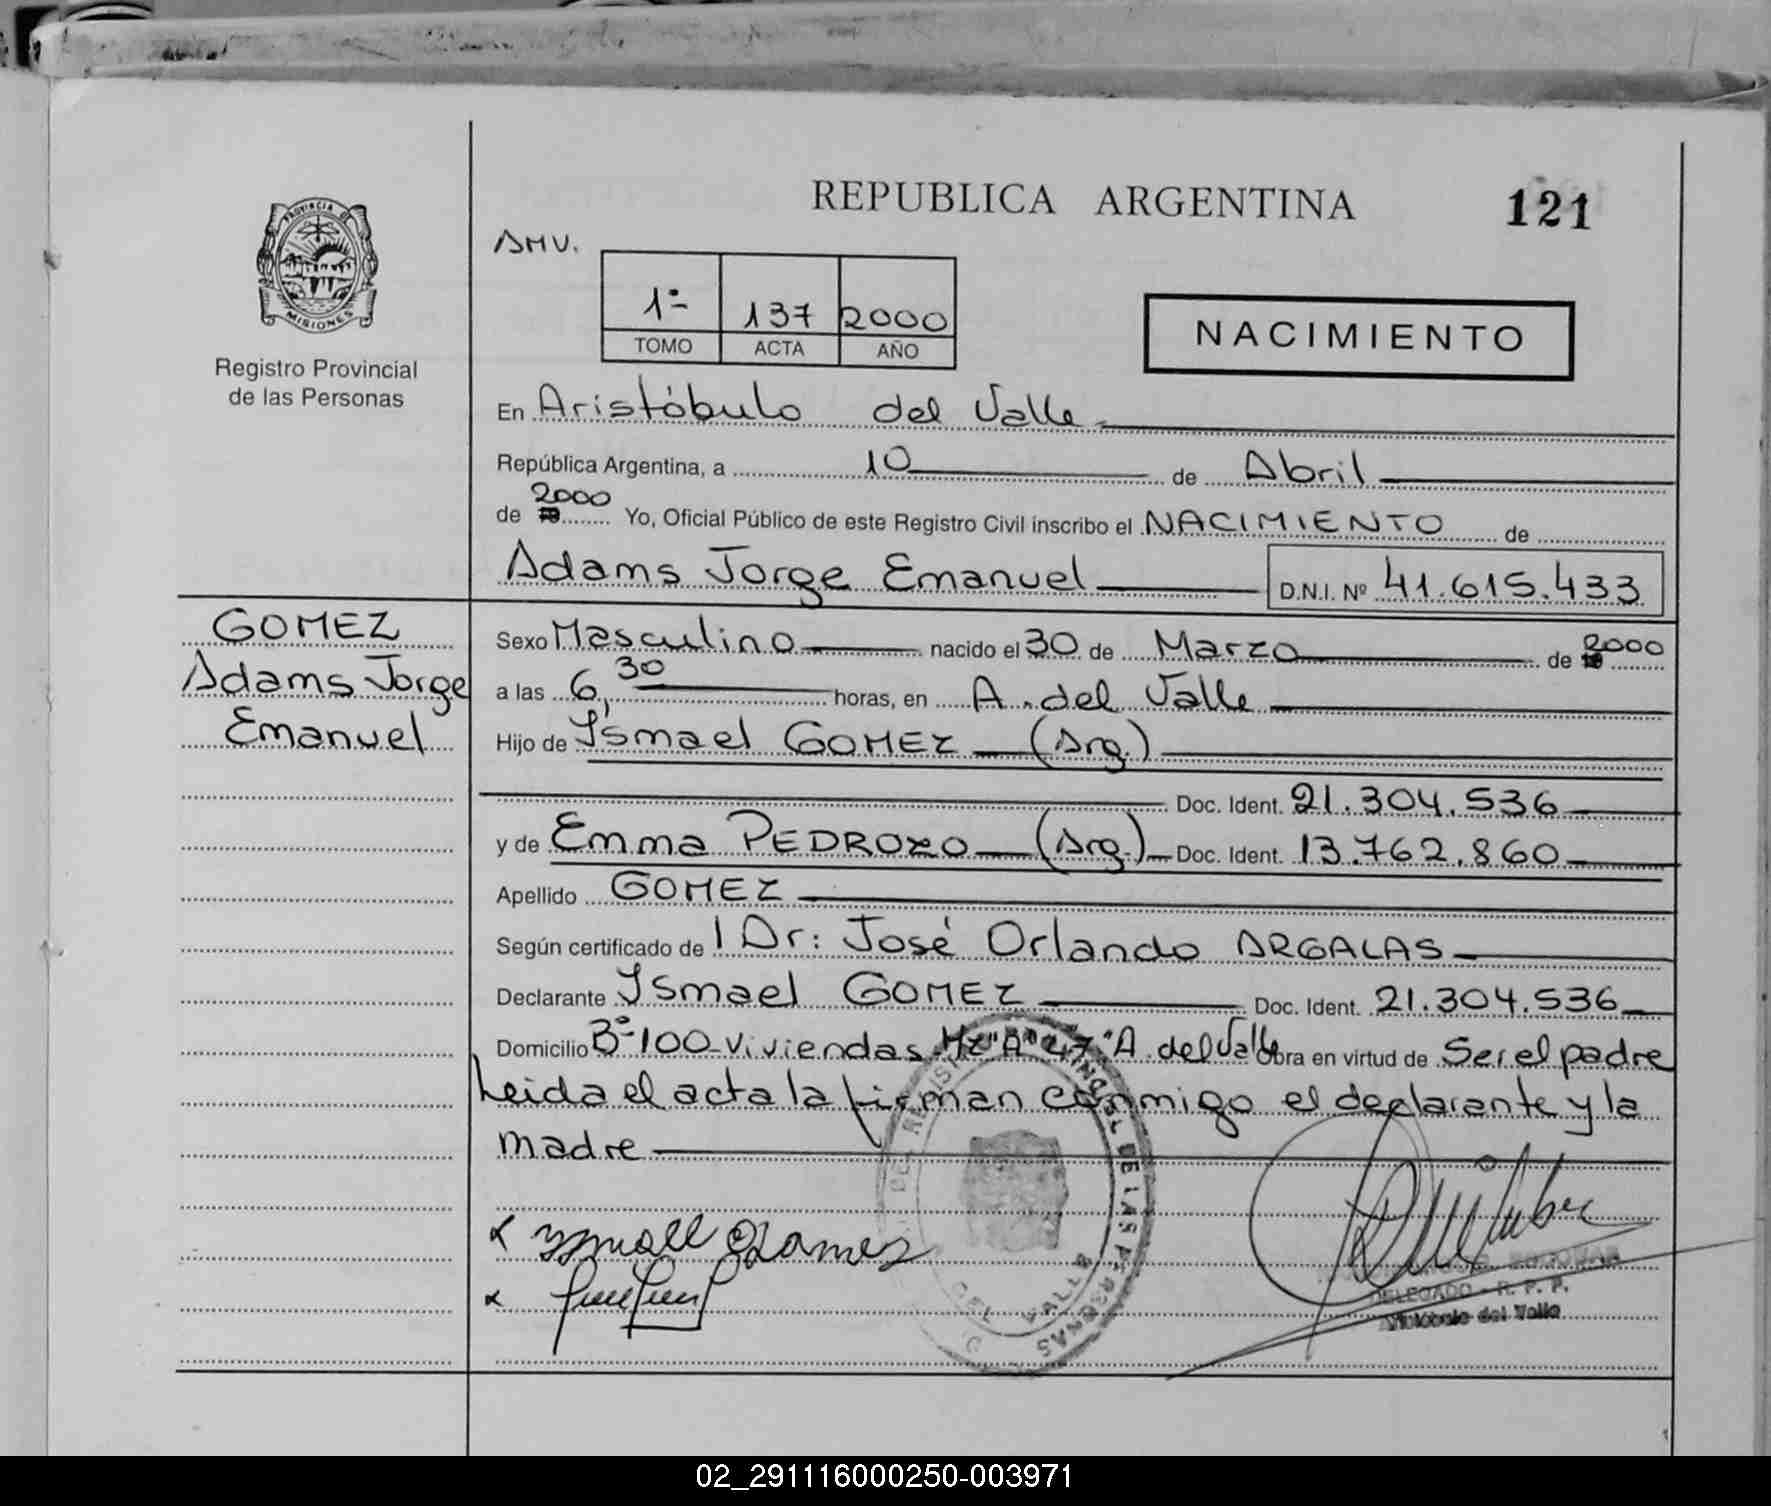 REPUBLICA ARGENTINA
121
PROVINCIA DE
MISIONES
Registro Provincial
de las Personas
AMV.
1º 137 2000
TOMO ACTA AÑO
NACIMIENTO
En Aristóbulo del Valle
República Argentina, a 10 de Abril
de 2000 Yo, Oficial Público de este Registro Civil inscribo el NACIMIENTO de
Adams Jorge Emanuel D.N.I. Nº 41.615.433
GOMEZ
Adams Jorge
Emanuel
Sexo Masculino nacido el 30 de Marzo de 2000
a las 6,30 horas, en A. del Valle
Hijo de Ismael GOMEZ (Arg.)
Doc. Ident. 21.304.536
y de Emma PEDROZO (Arg.) Doc. Ident. 13.762.860
Apellido GOMEZ
Según certificado de l Dr: José Orlando ARGALAS
Declarante Ismael GOMEZ Doc. Ident. 21.304.536
Domicilio Bº 100 viviendas Mz "A" 47 A. del Valle Obra en virtud de Ser el padre
Leida el acta la firman conmigo el declarante y la
madre
DEL VALLE
ESCOBAR
DELEGADO - R. P. P.
del Valle
02_291116000250-003971